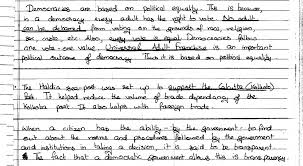 Democracies are based on political equality. This is because,
in a democracy every adult has the right to vote. No adult
can be debarred from voting on the grounds of race, religion,
sex, caste, etc. Also, every vote is equal. Democracies follow
one vote - one value. Universal Adult Franchise is an important
political outcome of democracy. Thus it is based on political equality
The Haldia sea-port was set up to support the Calcutta (Kolkata)
Port. It helped reduce the volume of trade dependency of the
Kolkata port. It also helps with foreign trade.
When a citizen has the ability - by the government - to find
out about the norms and procedures followed by the government
and institutions in taking a decision, it is said to be transparent.
The fact that a democratic government allows this is transparency